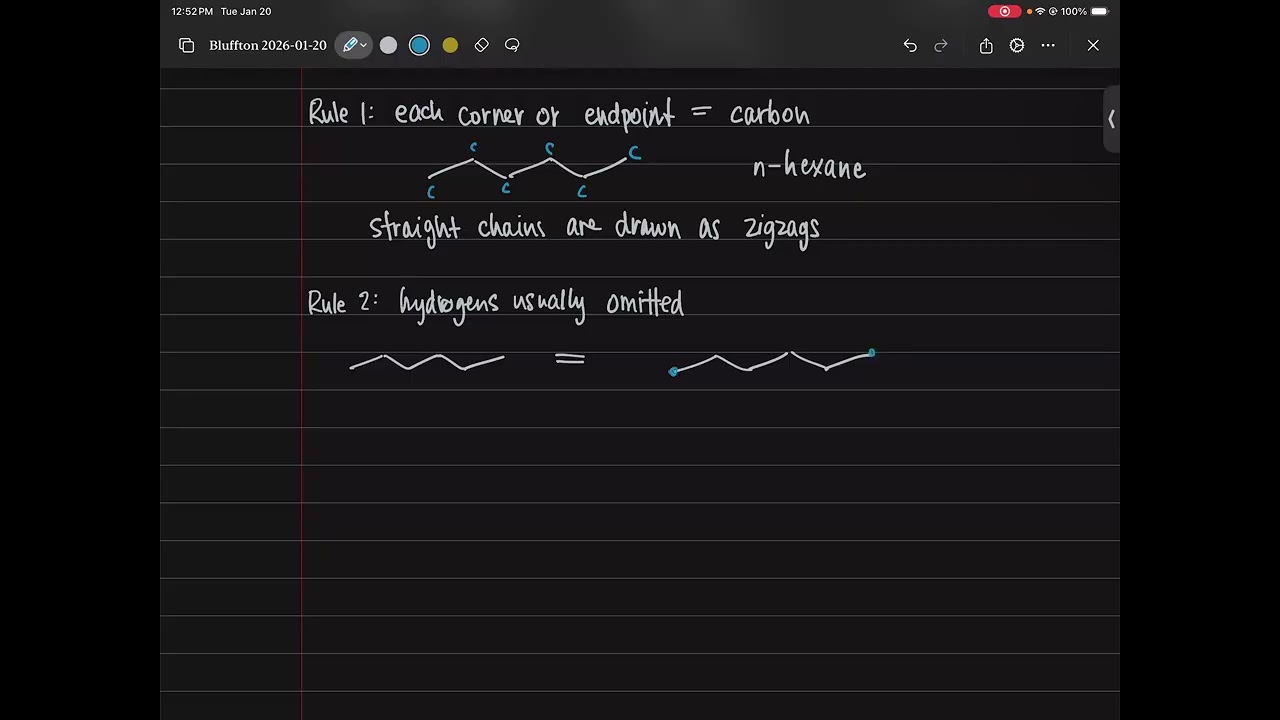 12:52PM Tue Jan 20
100%
Bluffton 2026-01-20
Rule 1: each corner or endpoint = carbon
C C C C C C
n-hexane
straight chains are drawn as zigzags
Rule 2: hydrogens usually omitted
=